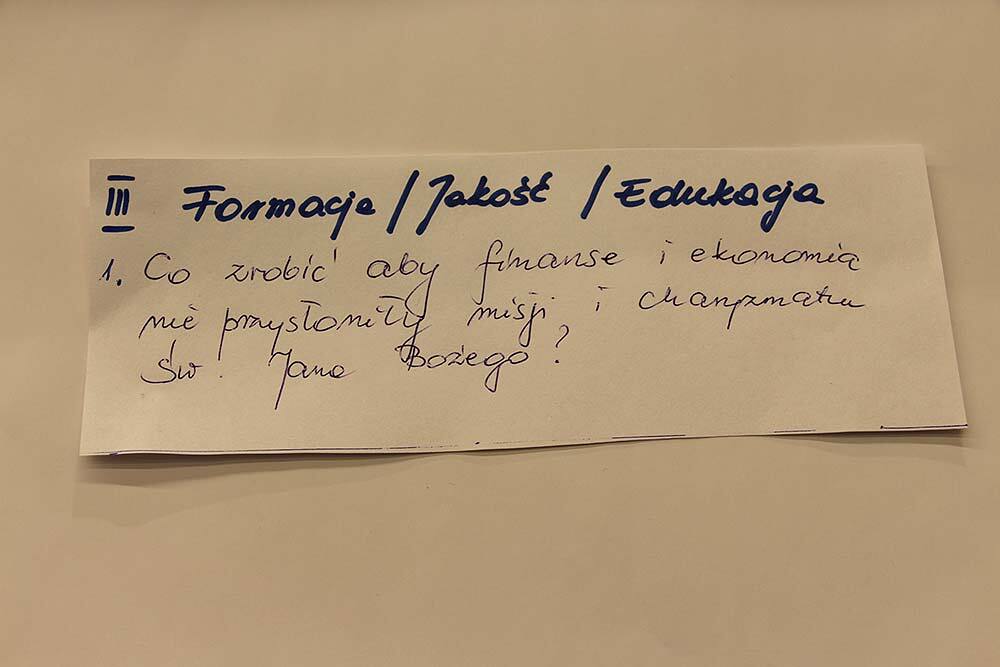 III Formacja / Jakość / Edukacja
1. Co zrobić aby finanse i ekonomia
nie przysłoniły misji i charyzmatu
Św. Jana Bożego?